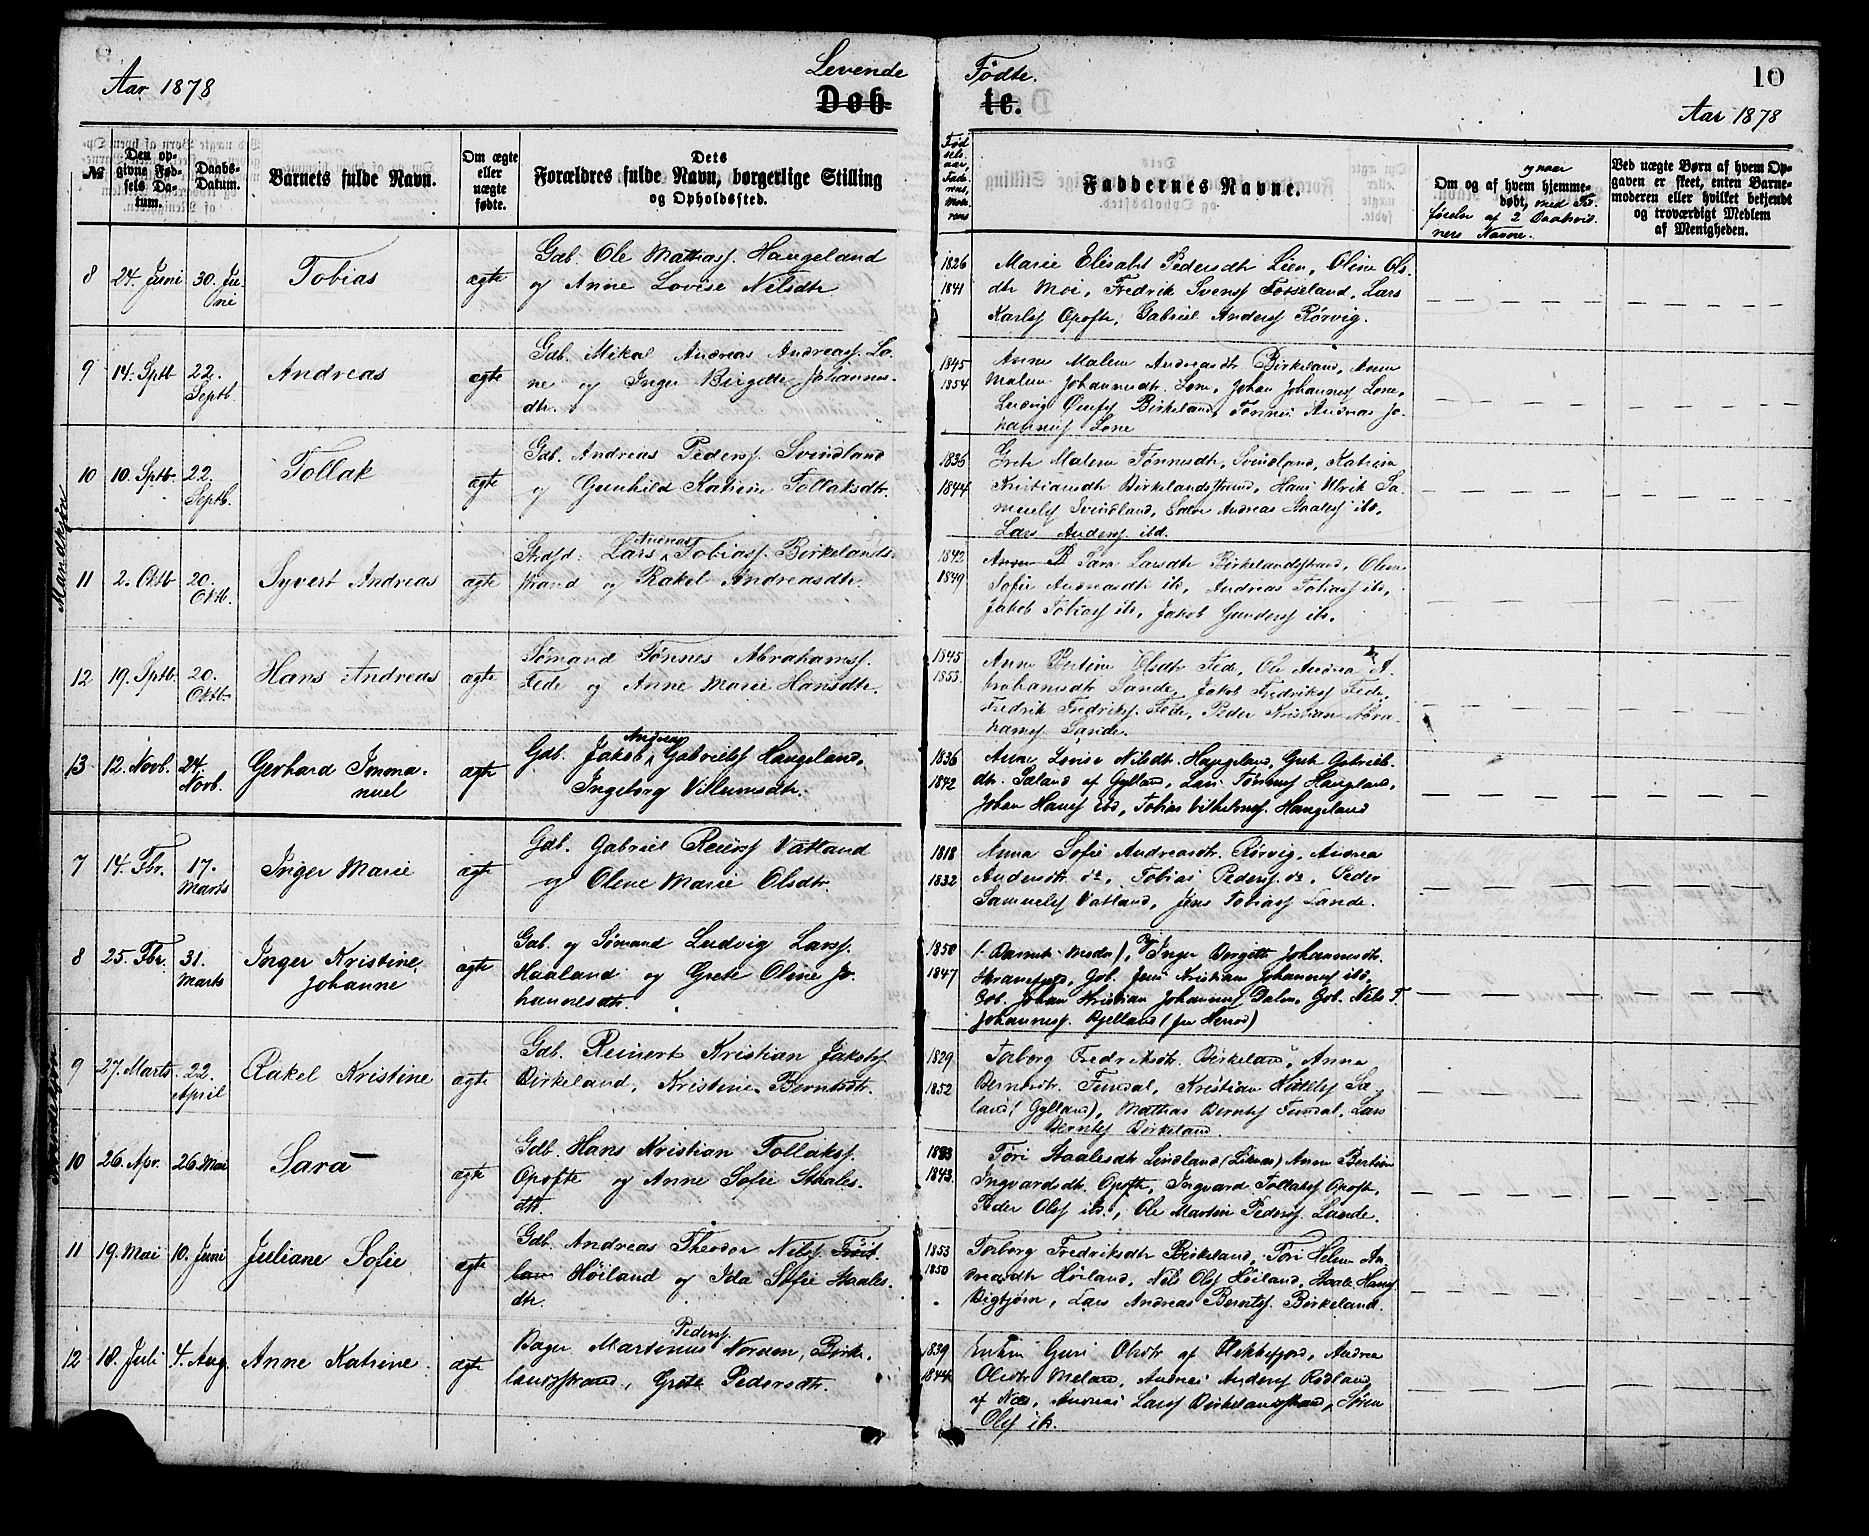 Aar 1878
Levende Fødte.
Døbte.
10
Aar 1878
№
Den opgivne Fødsels Datum.
Daabs-Datum.
Barnets fulde Navn.
Om ægte eller uægte fødte.
Dets
Forældres fulde Navn, borgerlige Stilling
og Opholdssted.
Fødselsaar, Faderens, Moderens
Faddernes Navne.
Om og af hvem hjemmedøbt,
Ved uægte Børn af hvem Opgaven er skeet, enten Barnemoderen eller hvilket bekjendt og troværdigt Medlem af Menigheden.
Mandkjøn
8 24. Juni 30. Juni Tobias ægte
Gdb. Ole Mathiass. Haugeland
og Anne Lovise Nilsdtr.
1826
1841
Marie Elisabt Pedersdtr Lien, Oline Ols-
dtr Moi, Fredrik Svenss Fosseland, Lars
Karlss Opofte, Gabriel Anderss Rørvig.
9 14. Sptb 22. Septb. Andreas ægte
Gdb. Mikal Andreas Andreass. Lo-
ne og Inger Birgitte Johannes-
dtr.
1845
1854
Anne Malene Andreasdtr Birkeland, Anne
Malene Johannesdtr. Lone, Johan Johanness Lone,
Ludvig Birkeland, Tønnes Andreas Jo-
hanness Lone
10 10. Sptb. 22. Septb. Tollak ægte
Gdb. Andreas Pederss. Svindland
og Gunhild Katrine Tollaksdtr.
1836
1844
Grete Malene Tønnesdtr, Svindland, Katrine
Kristiansdtr Birkelandsstrand, Hans Ulrik Sa-
muelss Svindland, Andreas Staaless ibd,
Lars Anderss ibd.
11 2. Oktb 20. Oktb. Syvert Andreas ægte
Strdsd. Lars Andreas Tobiass. Birkelands-
strand og Rakel Andreasdtr.
1842
1849
Sara Larsdtr Birkelandsstrand, Oline
Sofie Andreasdtr ibd, Andreas Tobiass ibd,
Jakob Tobiass ibd, Jakob Gunderss ibd.
12 19. Septb. 20. Oktb. Hans Andreas ægte
Sømand Tønnes Abrahamss.
Fede og Anne Marie Hansdtr.
1845
1853
Anne Bertine Olsdtr Fede, Andrea A-
brahamsdtr Sande, Jakob Fredrikss Fede,
Fredrik Fredrikss. Fede, Peder Kristian Abra-
hamss Sande.
13 12. Novb. 24. Novb. Gerhard Imma-
nuel ægte
Gdb. Jakob Andreas Gabrielss Haugeland,
Ingeborg Villumsdtr.
1836
1842
Anne Lovise Nilsdtr. Haugeland, Gabriels-
dtr. Sæland af Gylland, Lars Tønness Haugeland,
Johan Hanss Ebd, Tobias Vilhelmss. Haugeland
7 14. Fbr. 17. Marts Inger Marie ægte
Gdb. Gabriel Reierss Vatland
og Oline Marie Olsdtr.
1818
1832
Anna Sofie Andreasdtr. Rørvig, Andrea
Andersdtr. do, Tobias Pederss. do, Peder
Samuelss Vatland, Jens Tobiass Lande.
8 25. Fbr. 31. Marts Inger Kristine
Johanne ægte
Gdb. og Sømand Ludvig Larss.
Haaland og Grete Oline Jo-
hannesdtr.
1850
1847
Inger Birgitte Johannesdtr.
Gdb. Jens Kristian Johanness ibd,
Gdb. Johan Kristian Johanness Dalen, Gdb. Nils T.
Johanness. Bjelland (fra Herred)
9 27. Marts. 22. April Rakel Kristine ægte
Gdb. Reinert Kristian Jakobss
Birkeland, Kristine Berntsdtr.
1829
1852
Torborg Fredriksdtr. Birkeland, Anna
Berntsdtr. Fundal, Kristian Nilss Sæ-
land (Gylland), Mathias Berntss Fundal, Lars
Berntss Birkeland.
10 26. Apr. 26 Mai Sara ægte
Gdb. Hans Kristian Tollakss.
Opofte og Anne Sofie Staales-
dtr.
1843.
Tøri Staalesdtr Lindland (Liknes) Anne Bertine
Ingvardsdtr. Opofte, Ingvard Tollakss Opofte,
Peder Olss ibd., Ole Martin Pederss. Lande.
11 19. Mai 10. Juni Juliane Sofie ægte
Gdb. Andreas Theodor Nilss.
Høiland og Ida Sofie Staales-
dtr.
1853
1850
Torborg Fredriksdtr Birkeland, Tøri Helene An-
dreasdtr Høiland, Nils Olss Høiland, Staale Hanss
Bigtjørn, Lars Andreas Berntss. Birkeland.
12 18. Juli 4. Aug. Anne Katrine ægte
Bager Martinus Pederss. Norum, Birke-
landsstrand, Grete Pedersdtr.
1839
1844
Enken Guri Olsdtr af Flekkefjord, Andrea
Olsdtr Meland, Andreas Anderss Rødland
af Næs, Andreas Larss Birkelandsstrand, Søren
Olss ib.